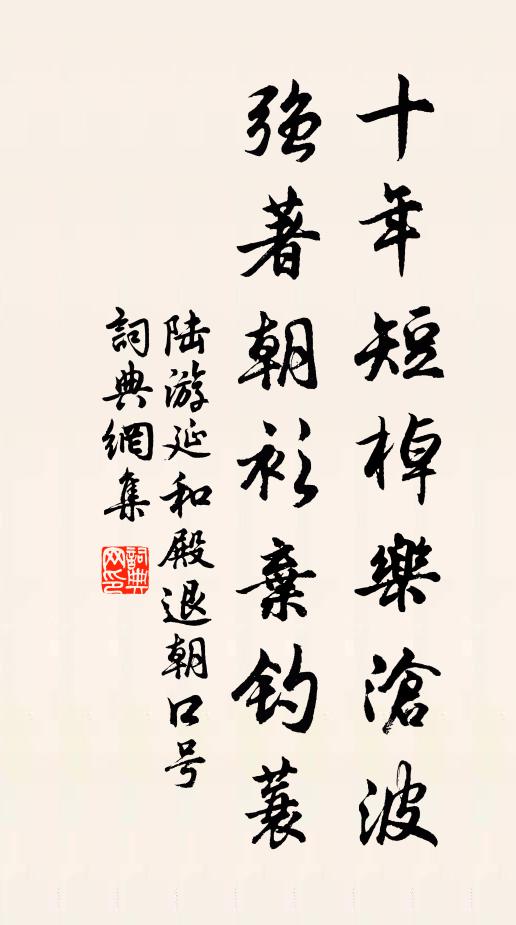 十年短棹樂滄波
強著朝衫棄釣蓑
陆游延和殿退朝口号
詞典網集
詞典
网印